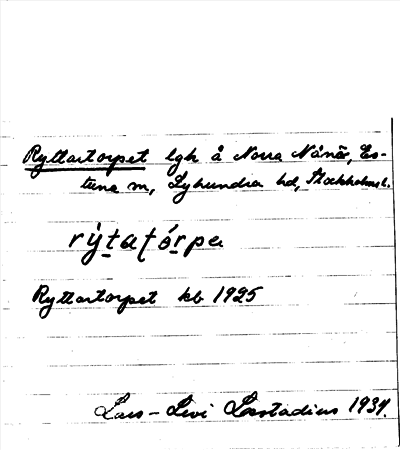 Ryttartorpet lgh å Norra Nånö, Es-
tuna sn, Lyhundra hd, Stockholms l.
rýtatórpa
Ryttartorpet kb 1925
Lars-Levi Læstadius 1934.